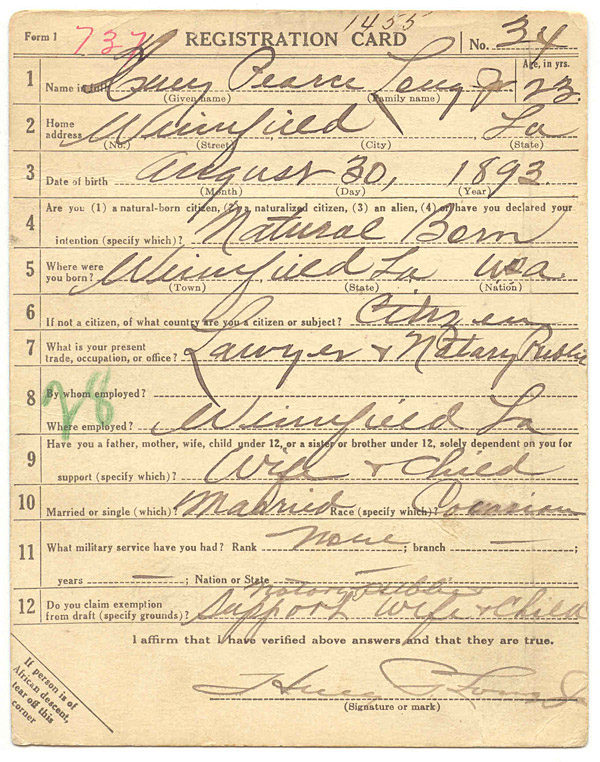 1455
Form 1 737 REGISTRATION CARD No. 34
1 Name in full Huey Pearce Long Jr Age, in yrs. 23
(Given name) (Family name)
2 Home address Winnfield La
(No.) (Street) (City) (State)
3 Date of birth August 30, 1893
(Month) (Day) (Year)
4 Are you (1) a natural-born citizen, (2) a naturalized citizen, (3) an alien, (4) or have you declared your
intention (specify which)? Natural Born
5 Where were you born? Winnfield La USA
(Town) (State) (Nation)
6 If not a citizen, of what country are you a citizen or subject? Citizen
7 What is your present trade, occupation, or office? Lawyer & Notary Public
28
8 By whom employed?
Where employed? Winnfield La
9 Have you a father, mother, wife, child under 12, or a sister or brother under 12, solely dependent on you for
support (specify which)? Wife & Child
10 Married or single (which)? Married Race (specify which)?
11 What military service have you had? Rank None ; branch — ;
years — ; Nation or State
Notary Public
12 Do you claim exemption from draft (specify grounds)? Support Wife & Child
I affirm that I have verified above answers and that they are true.
Huey P Long Jr
(Signature or mark)
If person is of
African descent,
tear off this
corner